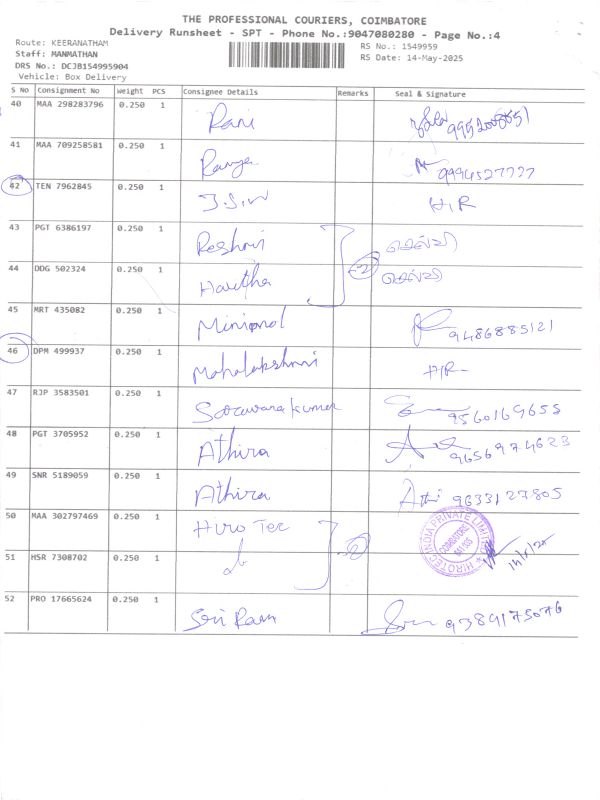 THE PROFESSIONAL COURIERS, COIMBATORE
Delivery Runsheet - SPT - Phone No.:9047080280 - Page No.:4
Route: KEERANATHAM
Staff: MANMATHAN
DRS No.: DCJB154995904
Vehicle: Box Delivery
RS No.: 1549959
RS Date: 14-May-2025
S No Consignment No Weight PCS Consignee Details Remarks Seal & Signature
40 MAA 298283796 0.250 1 Rani
41 MAA 709258581 0.250 1 Ramya 9994527777
42 TEN 7962845 0.250 1 J.S.W H/R
43 PGT 6386197 0.250 1 Reshmi செல்வி
44 DDG 502324 0.250 1 Haritha 2 செல்வி
45 MRT 435082 0.250 1 9486885121
46 DPM 499937 0.250 1 Mahalakshmi H/R
47 RJP 3583501 0.250 1 Saravanakumar 9560169655
48 PGT 3705952 0.250 1 Athira 9656974623
49 SNR 5189059 0.250 1 Athira Athi 9633127805
50 MAA 302797469 0.250 1 Hiro Tec 2
HIROTEC INDIA PRIVATE LIMITED
COIMBATORE
14/5/25
51 HSR 7308702 0.250 1
52 PRO 17665624 0.250 1 Sri Ram 9384175076